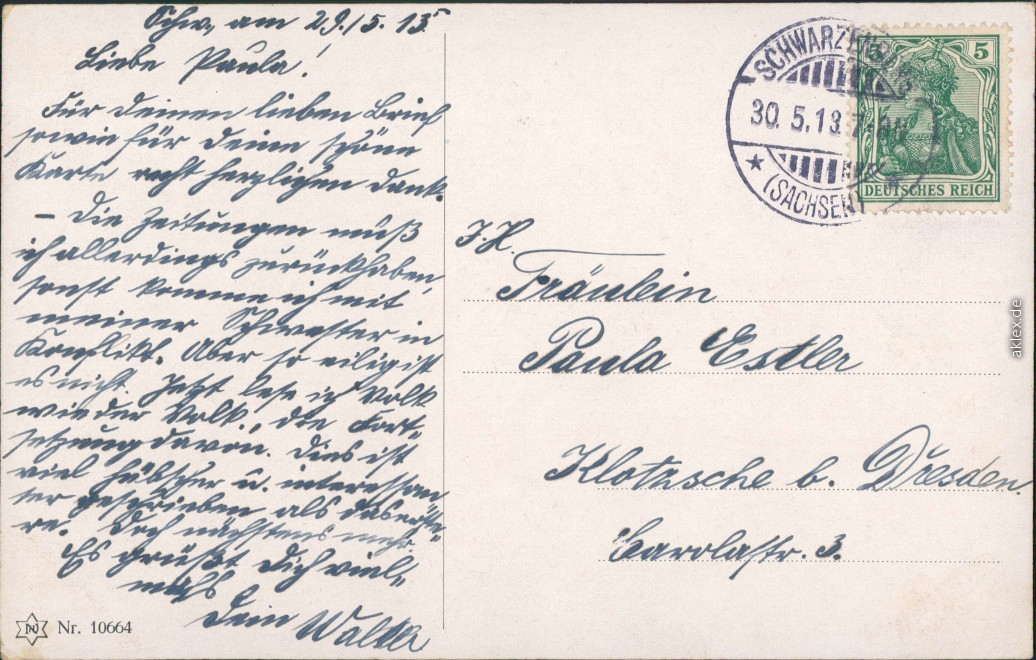 Schw, am 29./5. 13.
Liebe Paula!
Für deinen lieben Brief
sowie für deine schöne
Karte recht herzlichen Dank.
– Die Zeitungen muß
ich allerdings zurückhaben,
sonst komme ich mit
meiner Schwester in
Konflikt. Aber so eilig ist
es nicht. Jetzt lese ich Volk
wieder Volk, die Fort-
setzung davon. Dies ist
viel hübscher u. interessan-
ter geschrieben als das erste-
re. Doch nächstens mehr.
Es grüßt Dich viel-
mals
Dein Walter
SCHWARZENBERG
30. 5. 13. 7-8 N
(SACHSEN)
5
DEUTSCHES REICH
Fräulein
Paula Estler
Klotzsche b. Dresden.
Carolastr. 3.
Nr. 10664
aklex.de